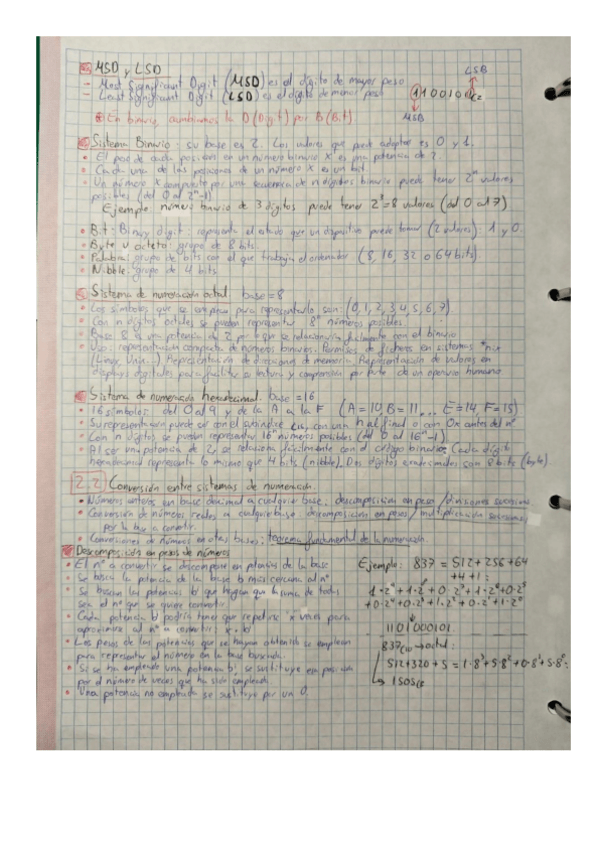 MSD y LSD
- Most Significant Digit (MSD) es el dígito de mayor peso
- Least Significant Digit (LSD) es el dígito de menor peso
LSB
11001010(2
MSB
En binario, cambiamos la D (Digit) por B (Bit)
Sistema Binario: su base es 2. Los valores que puede adoptar es 0 y 1.
• El peso de cada posición en un número binario X es una potencia de 2.
• Cada una de las posiciones de un número X es un bit.
• Un número X compuesto por una secuencia de n dígitos binario puede tener 2^n valores
posibles (del 0 al 2^n-1)
Ejemplo: número binario de 3 dígitos puede tener 2^3=8 valores (del 0 al 7)
• Bit: Binary digit: representa el estado que un dispositivo puede tomar (2 valores): 1 y 0.
• Byte u octeto: grupo de 8 bits.
• Palabra: grupo de bits con el que trabaja el ordenador (8, 16, 32 o 64 bits).
• Nibble: grupo de 4 bits.
Sistema de numeración octal: base=8
• Los símbolos que se emplean para representarlo son: (0,1,2,3,4,5,6,7)
• Con n dígitos octales se pueden representar 8^n números posibles.
• Base 8 es una potencia de 2 por lo que se relaciona fácilmente con el binario
• Uso: representación compacta de números binarios. Permisos de ficheros en sistemas *nix
(Linux, Unix...) Representación de direcciones de memoria. Representación de valores en
displays digitales para facilitar su lectura y comprensión por parte de un operario humano
Sistema de numeración hexadecimal: base=16
• 16 símbolos: del 0 al 9 y de la A a la F (A=10, B=11,... E=14, F=15)
• Su representación puede ser con el subíndice (16, con una h al final o con 0x antes del nº
• Con n dígitos se pueden representar 16^n números posibles (del 0 al 16^n-1).
• Al ser una potencia de 2, se relaciona fácilmente con el código binario. Cada dígito
hexadecimal representa lo mismo que 4 bits (nibble). Dos dígitos son 8 bits (byte).
2.2 Conversión entre sistemas de numeración.
• Números enteros en base decimal a cualquier base: descomposición en pesos / divisiones sucesivas
• Conversión de números reales a cualquier base: descomposición en pesos / multiplicación sucesivas
por la base a convertir.
• Conversiones de números en otras bases: teorema fundamental de la numeración.
Descomposición en pesos de números
• El nº a convertir se descompone en potencias de la base
• Se busca la potencia de la base b más cercana al nº
• Se buscan las potencias b^i que hagan que la suma de todas
sea el nº que se quiere convertir.
• Cada potencia b^i podría tener que repetirse "x" veces para
aproximarse al nº a convertir: x·b^i
• Los pesos de las potencias que se hayan obtenido se emplean
para representar el número en la base buscada.
• Si se ha empleado una potencia b^i, se sustituye esa posición
por el número de veces que ha sido empleada.
• Una potencia no empleada se sustituye por un 0.
Ejemplo: 837 = 512+256+64
+4+1:
1·2^9+1·2^8+0·2^7+1·2^6+0·2^5
+0·2^4+0·2^3+1·2^2+0·2^1+1·2^0
1101000101
837(10→octal:
512+320+5=1·8^3+5·8^2+0·8^1+5·8^0:
→1505(8